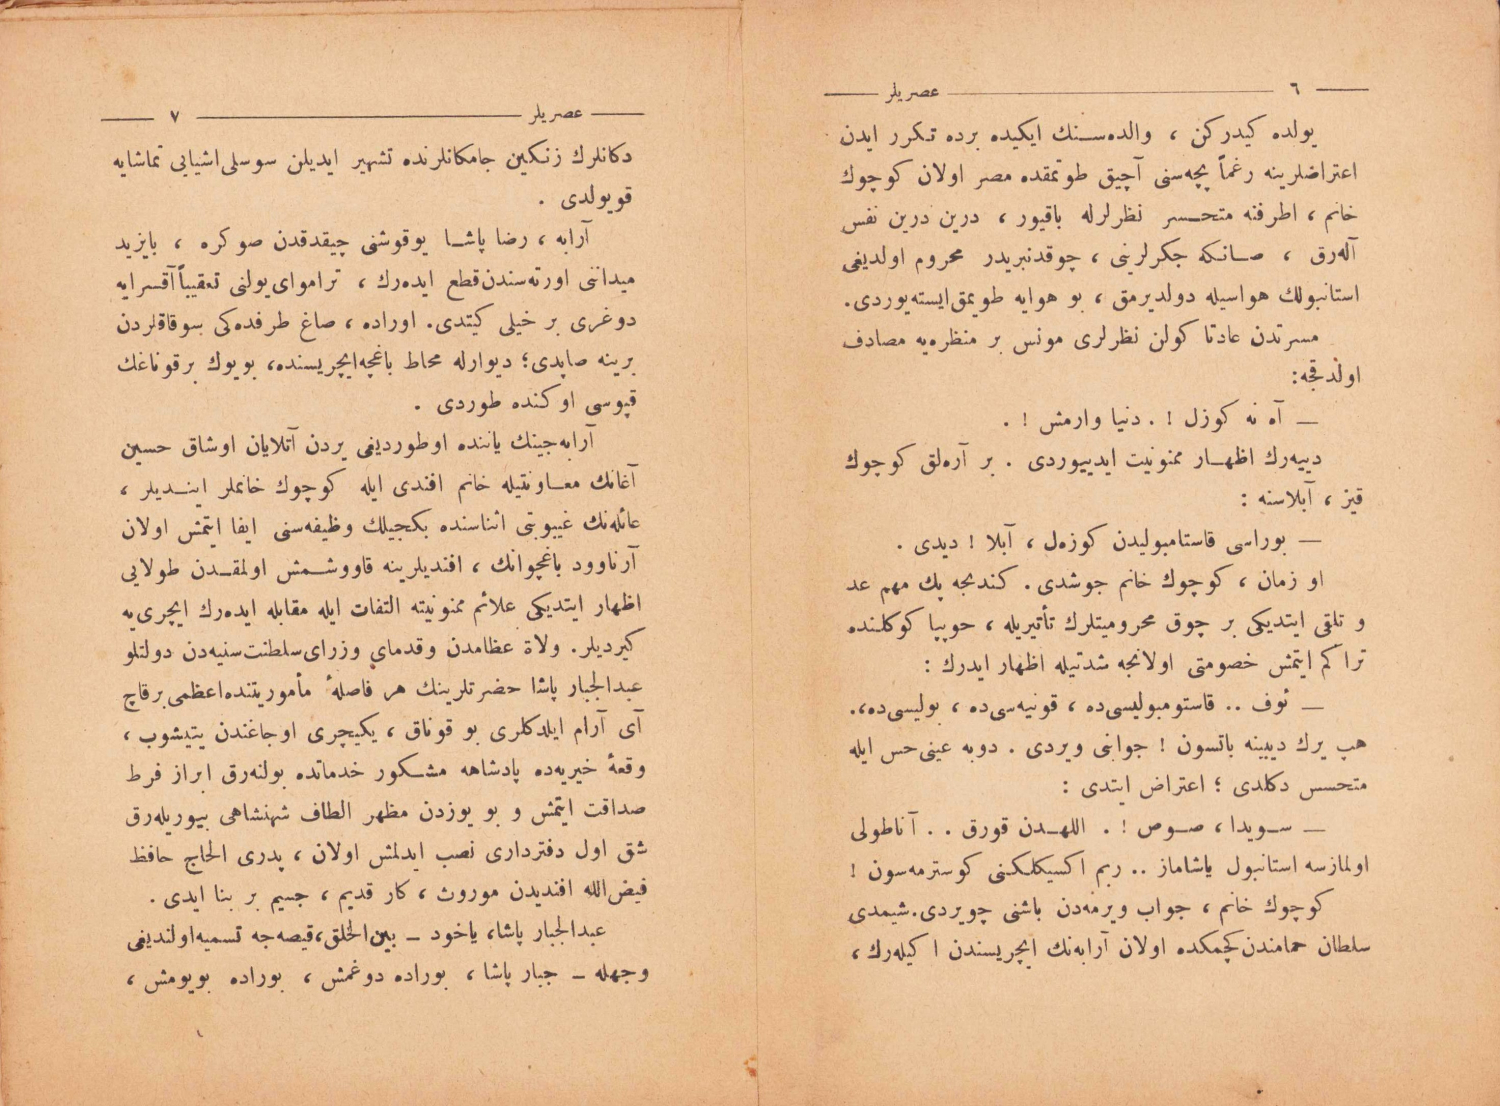 ٦ عصريلر
يولده كيدركن ، والده‌سنك ايكيده برده تكرر ايدن
اعتراضلرينه رغماً پچه‌سنى آچيق طوتمقده مصر اولان كوچوك
خانم ، اطرفنه متحسر نظرلرله باقيور ، درين درين نفس
آله‌رق ، صانكه جكرلرينى ، چوقدنبريدر محروم اولديغى
استانبولك هواسيله دولديرمق ، بو هوايه طويمق ايسته‌يوردى.
مسرتدن عادتا كولن نظرلرى مونس بر منظره‌يه مصادف
اولدقجه:
— آه نه كوزل ! . دنيا وارمش ! .
دييه‌رك اظهار ممنونيت ايدييوردى . بر آره‌لق كوچوك
قيز ، آبلاسنه :
— بوراسى قاستامبوليدن كوزه‌ل ، آبلا ! ديدى .
او زمان ، كوچوك خانم جوشدى . كندىجه پك مهم عد
و تلقى ايتديكى بر چوق محروميتلرك تأثيريله ، حوپپا كوكلنده
تراكم ايتمش خصومتى اولانجه شدتيله اظهار ايدرك :
— ئوف .. قاستومبوليسى‌ده ، قونيه‌سى‌ده ، بوليسى‌ده،.
هپ يرك ديبينه باتسون ! جوابنى ويردى . دوبه عينى حس ايله
متحسس دكلدى ؛ اعتراض ايتدى :
— سويدا ، صوص ! . اللهدن قورق . . آناطولى
اولمازسه استانبول ياشاماز .. ربم اكسيكلكنى كوسترمه‌سون !
كوچوك خانم ، جواب ويرمه‌دن باشنى چويردى. شيمدى
سلطان حمامندن كچمكده اولان آرابه‌نك ايچريسندن اكيله‌رك ،
عصريلر ٧
دكانلرك زنكين جامكانلرنده تشهير ايديلن سوسلى اشيايى تماشايه
قويولدى .
آرابه ، رضا پاشا يوقوشنى چيقدقدن صوكره ، بايزيد
ميداننى اورته‌سندن قطع ايده‌رك ، تراموا‌ى يولنى تعقيباً آقسرايه
دوغرى بر خيلى كيتدى. اوراده ، صاغ طرفده‌كى سوقاقلردن
برينه صاپدى؛ ديوارله محاط باغچه ايچريسنده، بويوك بر قوناغك
قپوسى اوكنده طوردى .
آرابه‌جينك ياننده اوطورديغى يردن آتلايان اوشاق حسين
آغانك معاونتيله خانم افندى ايله كوچوك خانملر اينديلر ،
عائله‌نك غيبوبتى اثناسنده بكجيلك وظيفه‌سنى ايفا ايتمش اولان
آرناوود باغچوانك ، افنديلرينه قاووشمش اولمقدن طولايى
اظهار ايتديكى علائم ممنونيته التفات ايله مقابله ايده‌رك ايچرى‌يه
كيرديلر. ولاة عظامدن وقدماى وزراى سلطنت سنيه‌دن دولتلو
عبدالجبار پاشا حضرتلرينك هر فاصلهٔ مأموريتنده اعظمى بر قاچ
آى آرام ايلدكلرى بو قوناق ، يكيچرى اوجاغندن يتيشوب ،
وقعهٔ خيريه‌ده پادشاهه مشكور خدماتده بولنه‌رق ابراز فرط
صداقت ايتمش و بو يوزدن مظهر الطاف شهنشاهى بيوريله‌رق
شق اول دفتردارى نصب ايدلمش اولان ، پدرى الحاج حافظ
فيض‌الله افنديدن موروث ، كار قديم ، جسيم بر بنا ايدى .
عبدالجبار پاشا، ياخود — بين‌الخلق، قيصه‌جه تسميه اولنديغى
وجهله — جبار پاشا ، بوراده دوغمش ، بوراده بويومش ،